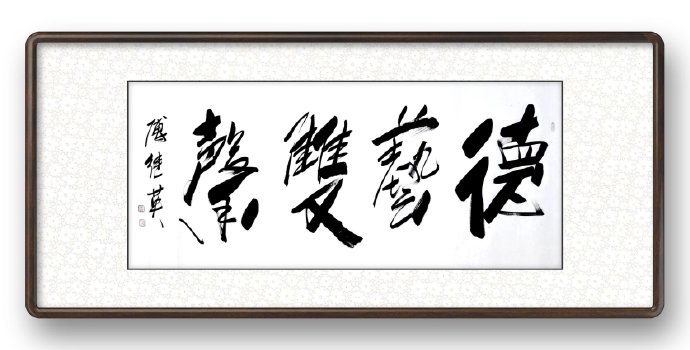 德藝雙馨
傅继英